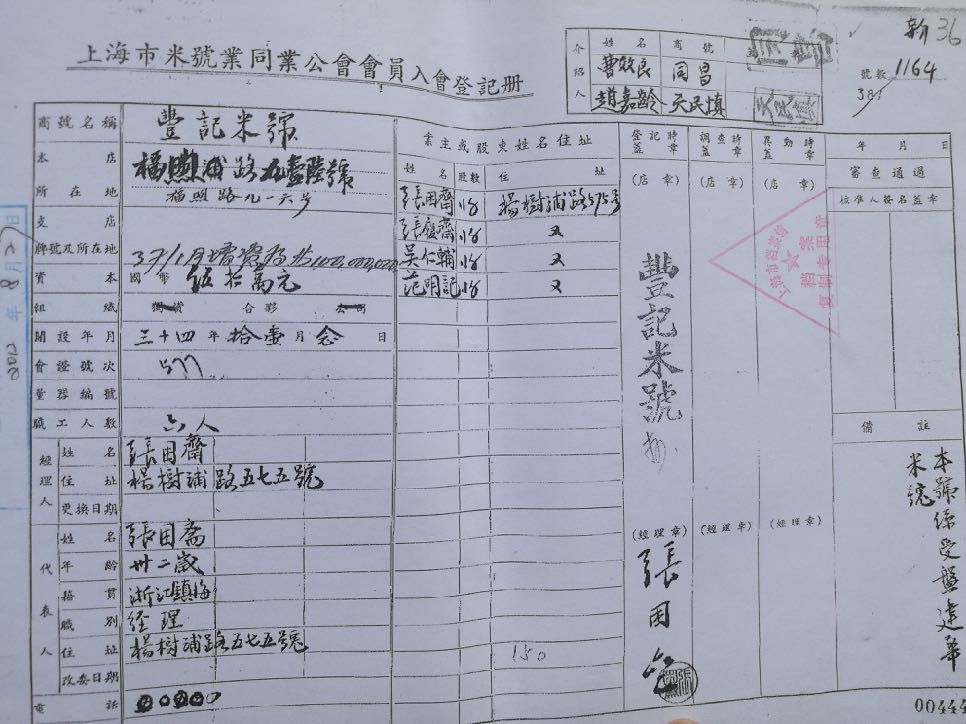 新 36
上海市米號業同業公會會員入會登記册
介紹人 姓名 商號
曹效良 同昌
趙嘉齡 天民慎
號數 1164
381
商號名稱 豐記米號
本店所在地 楊樹浦路九壹陸號
福照路九一六号
支店牌號及所在地
37/1月增資為 100,000,000
資本 國幣 伍拾萬元
組織 獨資 合夥 公司
開設年月 三十四年拾壹月念日
會證號次 577
量器編號
職工人數 六人
經理人
姓名 張用齋
住址 楊樹浦路五七五號
更換日期
代表人
姓名 張用齋
年齡 卅二歲
籍貫 浙江鎮海
職別 經理
住址 楊樹浦路五七五號
改委日期
電話
業主或股東姓名住址
姓名 股數 住址
張用齋 楊樹浦路575号
張履齋 〃
吳仁輔 〃
范明記 〃
150
登記時蓋章 調查時蓋章 異動時蓋章
(店章) (店章) (店章)
豐記米號
(經理章) (經理章) (經理章)
張用
年 月 日
審查通過
核准人簽名蓋章
上海市檔案館
档案
复制专用章
年 月 日
備註
本號係受盤達華
米號
00444